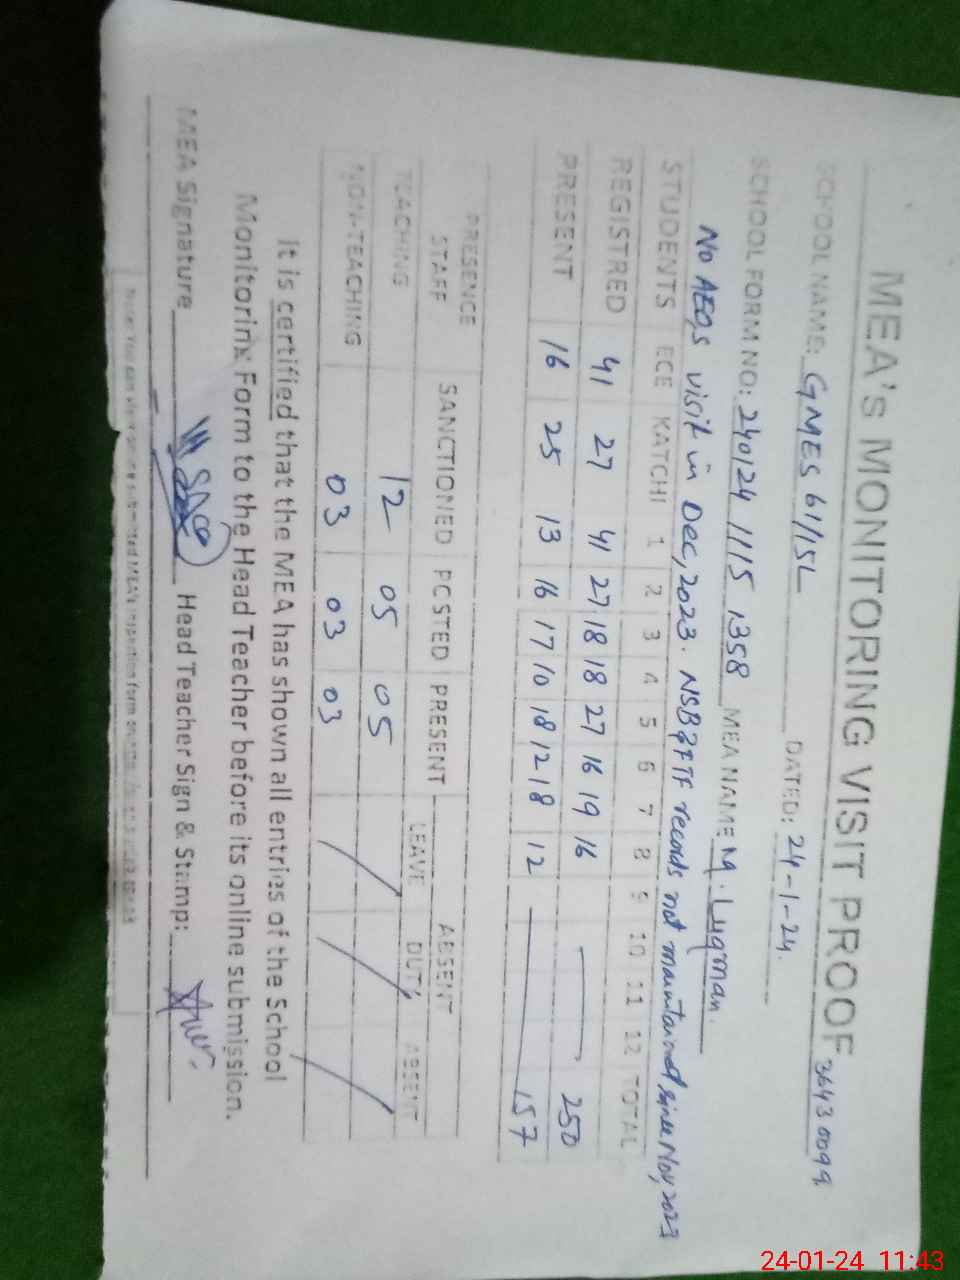 MEA's MONITORING VISIT PROOF
36430099
SCHOOL NAME: GMES 61/15L DATED: 24-1-24.
SCHOOL FORM NO: 240124 1115 1358 MEA NAME M. Luqman.
No AEO,s visit in Dec,2023. NSB & FTF records not maintained since Nov,2023
STUDENTS ECE KATCHI 1 2 3 4 5 6 7 8 9 10 11 12 TOTAL
REGISTRED 41 27 41 27 18 18 27 16 19 16 250
PRESENT 16 25 13 16 17 10 18 12 18 12 157
PRESENCE STAFF SANCTIONED POSTED PRESENT ABSENT
LEAVE DUTY ABSENT
TEACHING 12 05 05
NON-TEACHING 03 03 03
It is certified that the MEA has shown all entries of the School
Monitoring Form to the Head Teacher before its online submission.
MEA Signature Head Teacher Sign & Stamp:
24-01-24 11:43